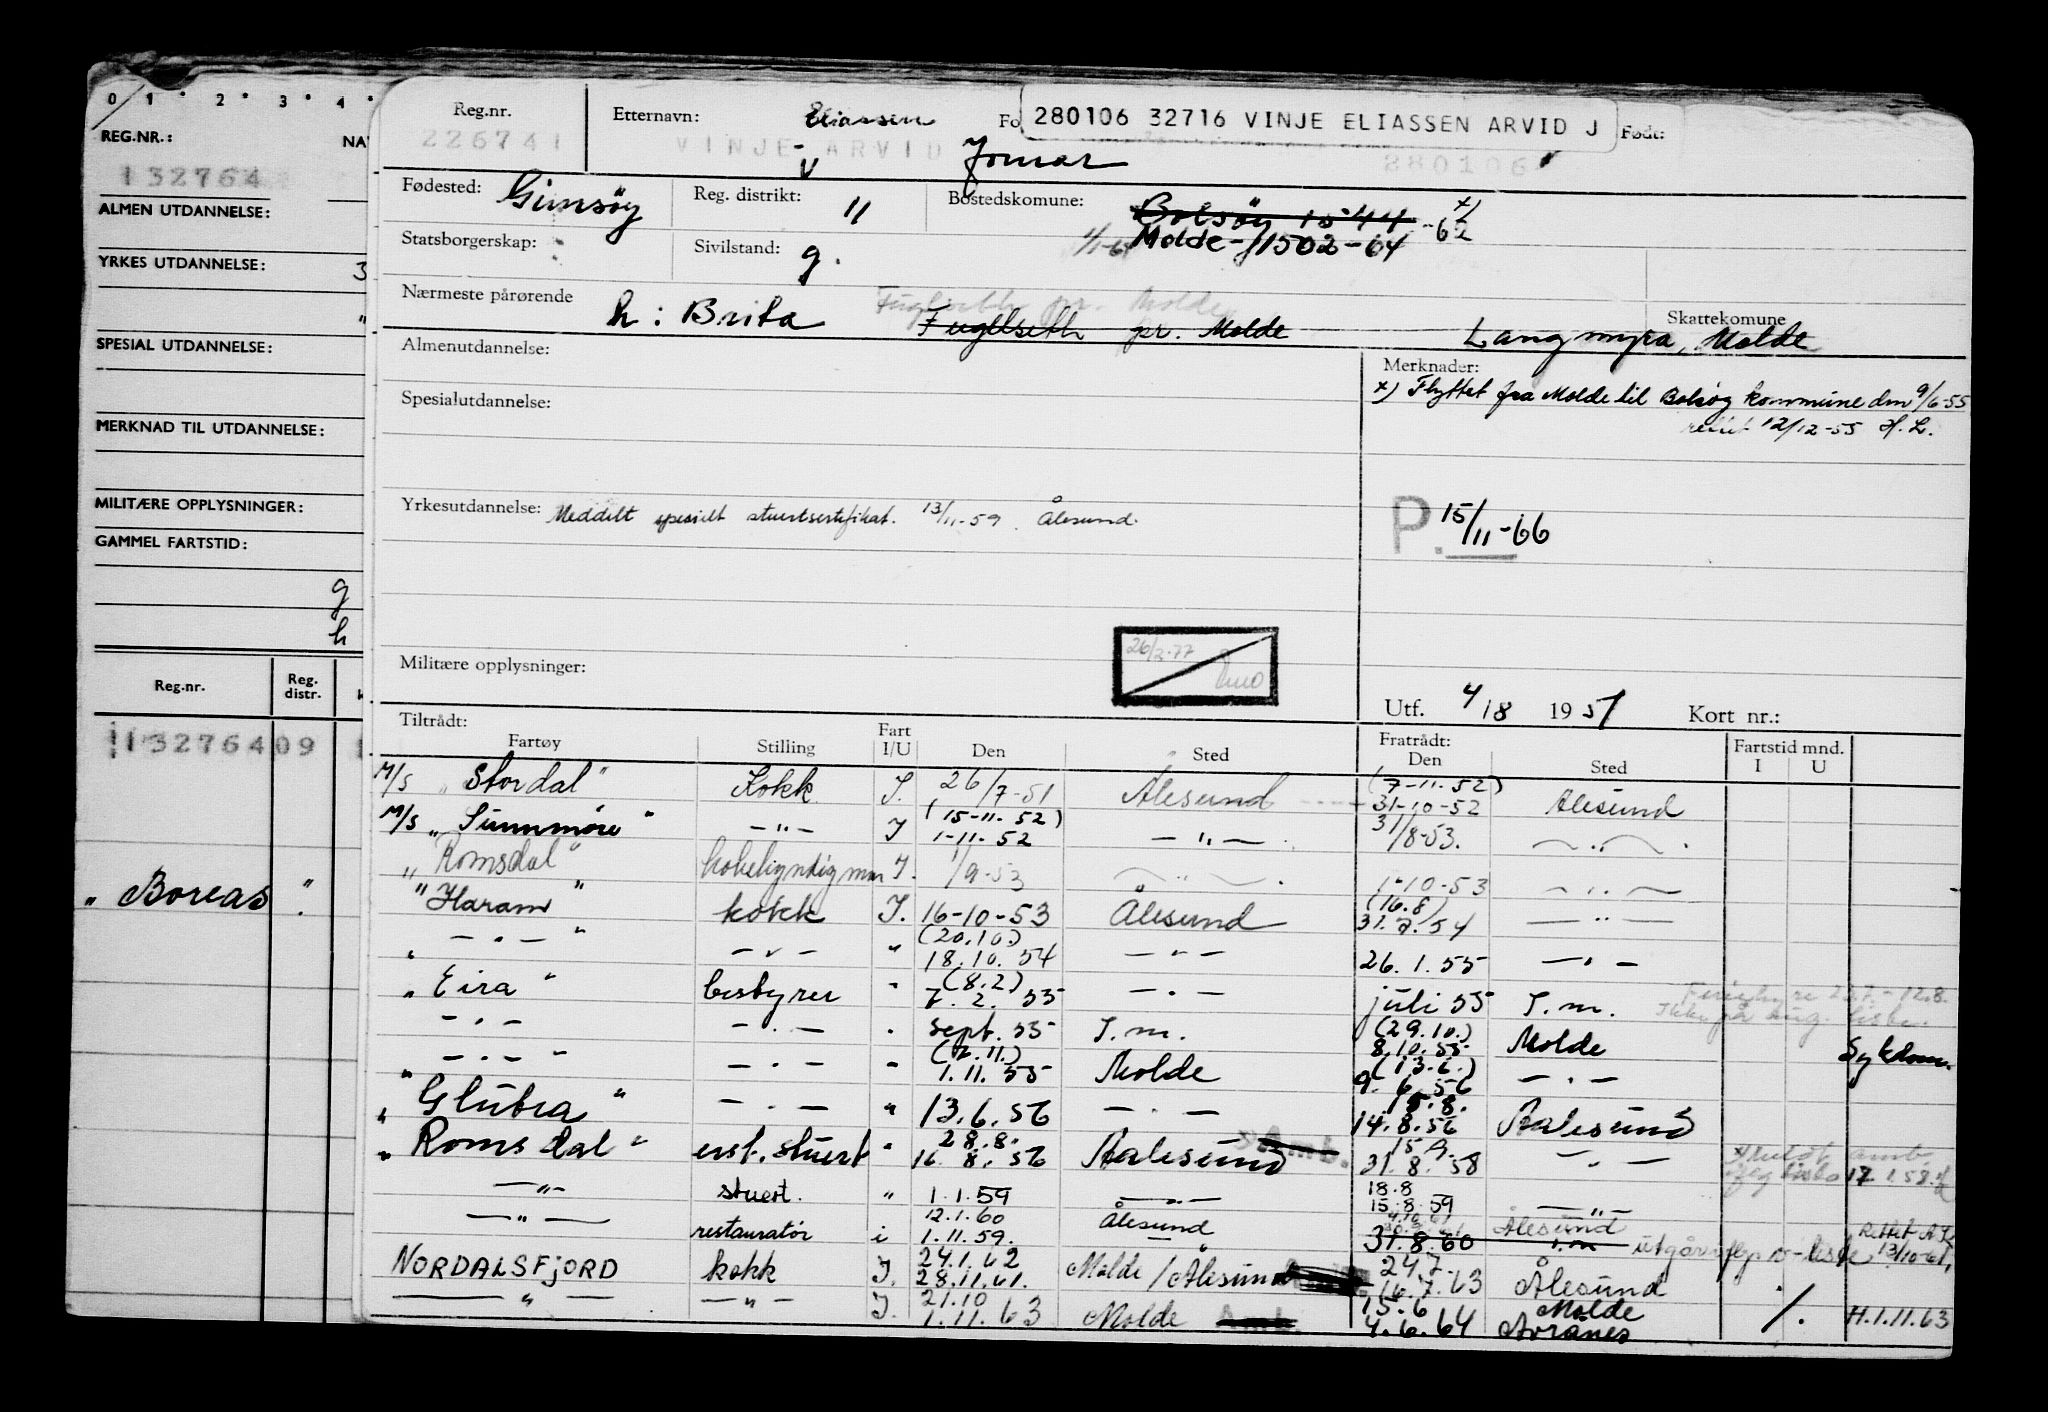 0 1 2 3 4
REG.NR.:
NA
132764
ALMEN UTDANNELSE:
YRKES UTDANNELSE: 3
"
SPESIAL UTDANNELSE:
MERKNAD TIL UTDANNELSE:
MILITÆRE OPPLYSNINGER:
GAMMEL FARTSTID:
g
h
Reg.nr. Reg. distr.
13276409
" Boreas "
Reg.nr. Etternavn: Eliassen Fo 280106 32716 VINJE ELIASSEN ARVID J Født:
226741 VINJE ARVID 280106
v Jomar
Fødested: Gimsøy Reg. distrikt: 11 Bostedskomune: Bolsøy 1544 -62 x)
Statsborgerskap: Sivilstand: g. 1/1-64 Molde - 1502-64
Nærmeste pårørende h: Brita Fuglseth pr. Molde Skattekomune
Fuglseth pr. Molde Langmyra, Molde
Almenutdannelse: Merknader:
x) Flyttet fra Molde til Bolsøy kommune den 9/6-55
rettet 12/12-55 H. L.
Spesialutdannelse:
Yrkesutdannelse: Meddelt spesielt stuertsertifikat. 13/11-59. Ålesund.
P. 15/11-66
Militære opplysninger: 26/2-77
Utf. 4/18 1951 Kort nr.:
Tiltrådt: Fratrådt:
Fartøy Stilling Fart I/U Den Sted Den Sted Fartstid mnd. I U
M/S "Stordal" Kokk I. 26/7-51 Ålesund (7-11-52) 31-10-52 Ålesund
M/S "Sunnmøre" -"- I (15-11-52) 1-11-52 -"- 31/8-53. -"-
" Romsdal" kokekyndig man I. 1/9-53 -"- 1-10-53 -"-
" Haram " kokk I. 16-10-53 Ålesund (16.8) 31.7.54 -"-
" -"- " -"- " (20.10.) 18.10.54 -"- 26.1.55 -"-
" Eira " bestyrer " (8.2) 7.2.55 -"- juli 55 I.m. 12.8.
-"- -"- " sept. 55 I.m. (29.10.) 8.10.55 Molde Sykdom.
" -"- " -"- " 1.11.55 Molde (13.6.) 9.6.56 -"-
" Glutra " -"- " 13.6.56 -"- 15.8. 14.8.56 Aalesund
" Romsdal " erst. stuert " 28.8. 16.8.56 Aalesund Amb. 15.9. 31.8.58 -"-
-"- stuert. " 1.1.59 -"- 18.8 15.8.59 -"-
-"- restauratør i 12.1.60 1.11.59. Ålesund 31.8.60 Ålesund I.m Rettet 13/10-61,
NORDALSFJORD kokk I. 24.1.62 28.11.61. Molde / Ålesund 24.7. 16.7.63 Ålesund
-"- -"- I. 21.10 1.11.63 Molde Amb. 15.6 4.6.64 Molde H.1.11.63